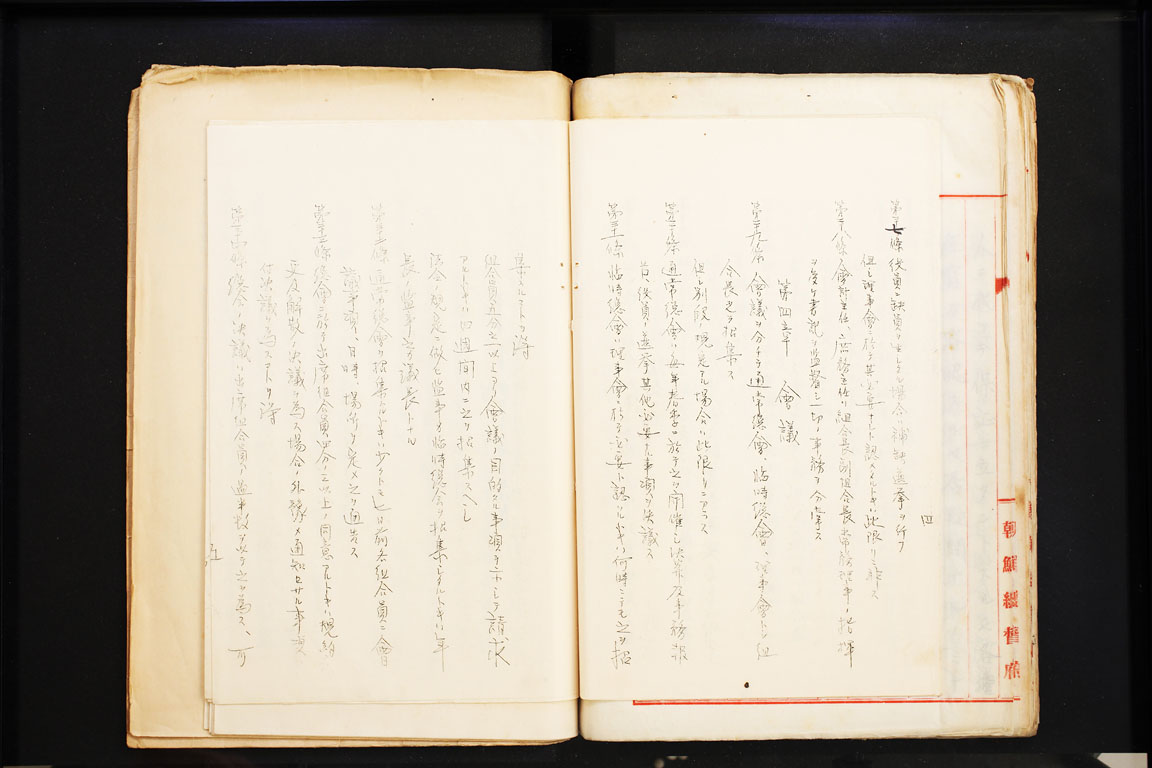 四
第二十七條 役員ニ缺員ヲ生シタル場合ハ補缺選挙ヲ行フ
但シ理事會ニ於テ其必要ナシト認メタルトキハ此限リニ非ス
第二十八條 會計主任、庶務主任ハ組合長、副組合長、常務理事ノ指揮
ヲ受ケ書記ヲ監督シ一切ノ事務ヲ分掌ス
第四章 會議
第二十九條 會議ヲ分チテ通常總會、臨時總會、理事會トシ組
合長之ヲ招集ス
但シ別段ノ規定アル場合ハ此限リニアラス
第三十條 通常總會ハ毎年春季ニ於テ之ヲ開催シ決算及事務報
告、役員ノ選挙其他必要ナル事項ヲ決議ス
第三十一條 臨時總會ハ理事會ニ於テ必要ト認メルトキハ何時ニテモ之ヲ招
集スルコトヲ得
組合員五分之一以上ヨリ會議ノ目的タル事項ヲ示シテ請求
アルトキハ四週間内ニ之ヲ招集スヘシ
法令ノ規定ニ依リ監事カ臨時總会ヲ招集シタルトキハ年
長ノ監事之カ議長トナル
第三十二條 通常總會ヲ招集スルトキハ少クトモ七日前各組合員ニ會
議ノ事項、日時、場所ヲ定メ之ヲ通告ス
第三十三條 總會ニ於テ出席組合員四分ノ三以上ノ同意アルトキハ規約
変更及解散ノ決議ヲ為ス場合ノ外豫メ通知セサル事項
ト雖決議ヲ為スコトヲ得
第三十四條 總会ノ決議ハ出席組合員ノ過半数ヲ以テ之ヲ為ス、可
五
朝鮮總督府